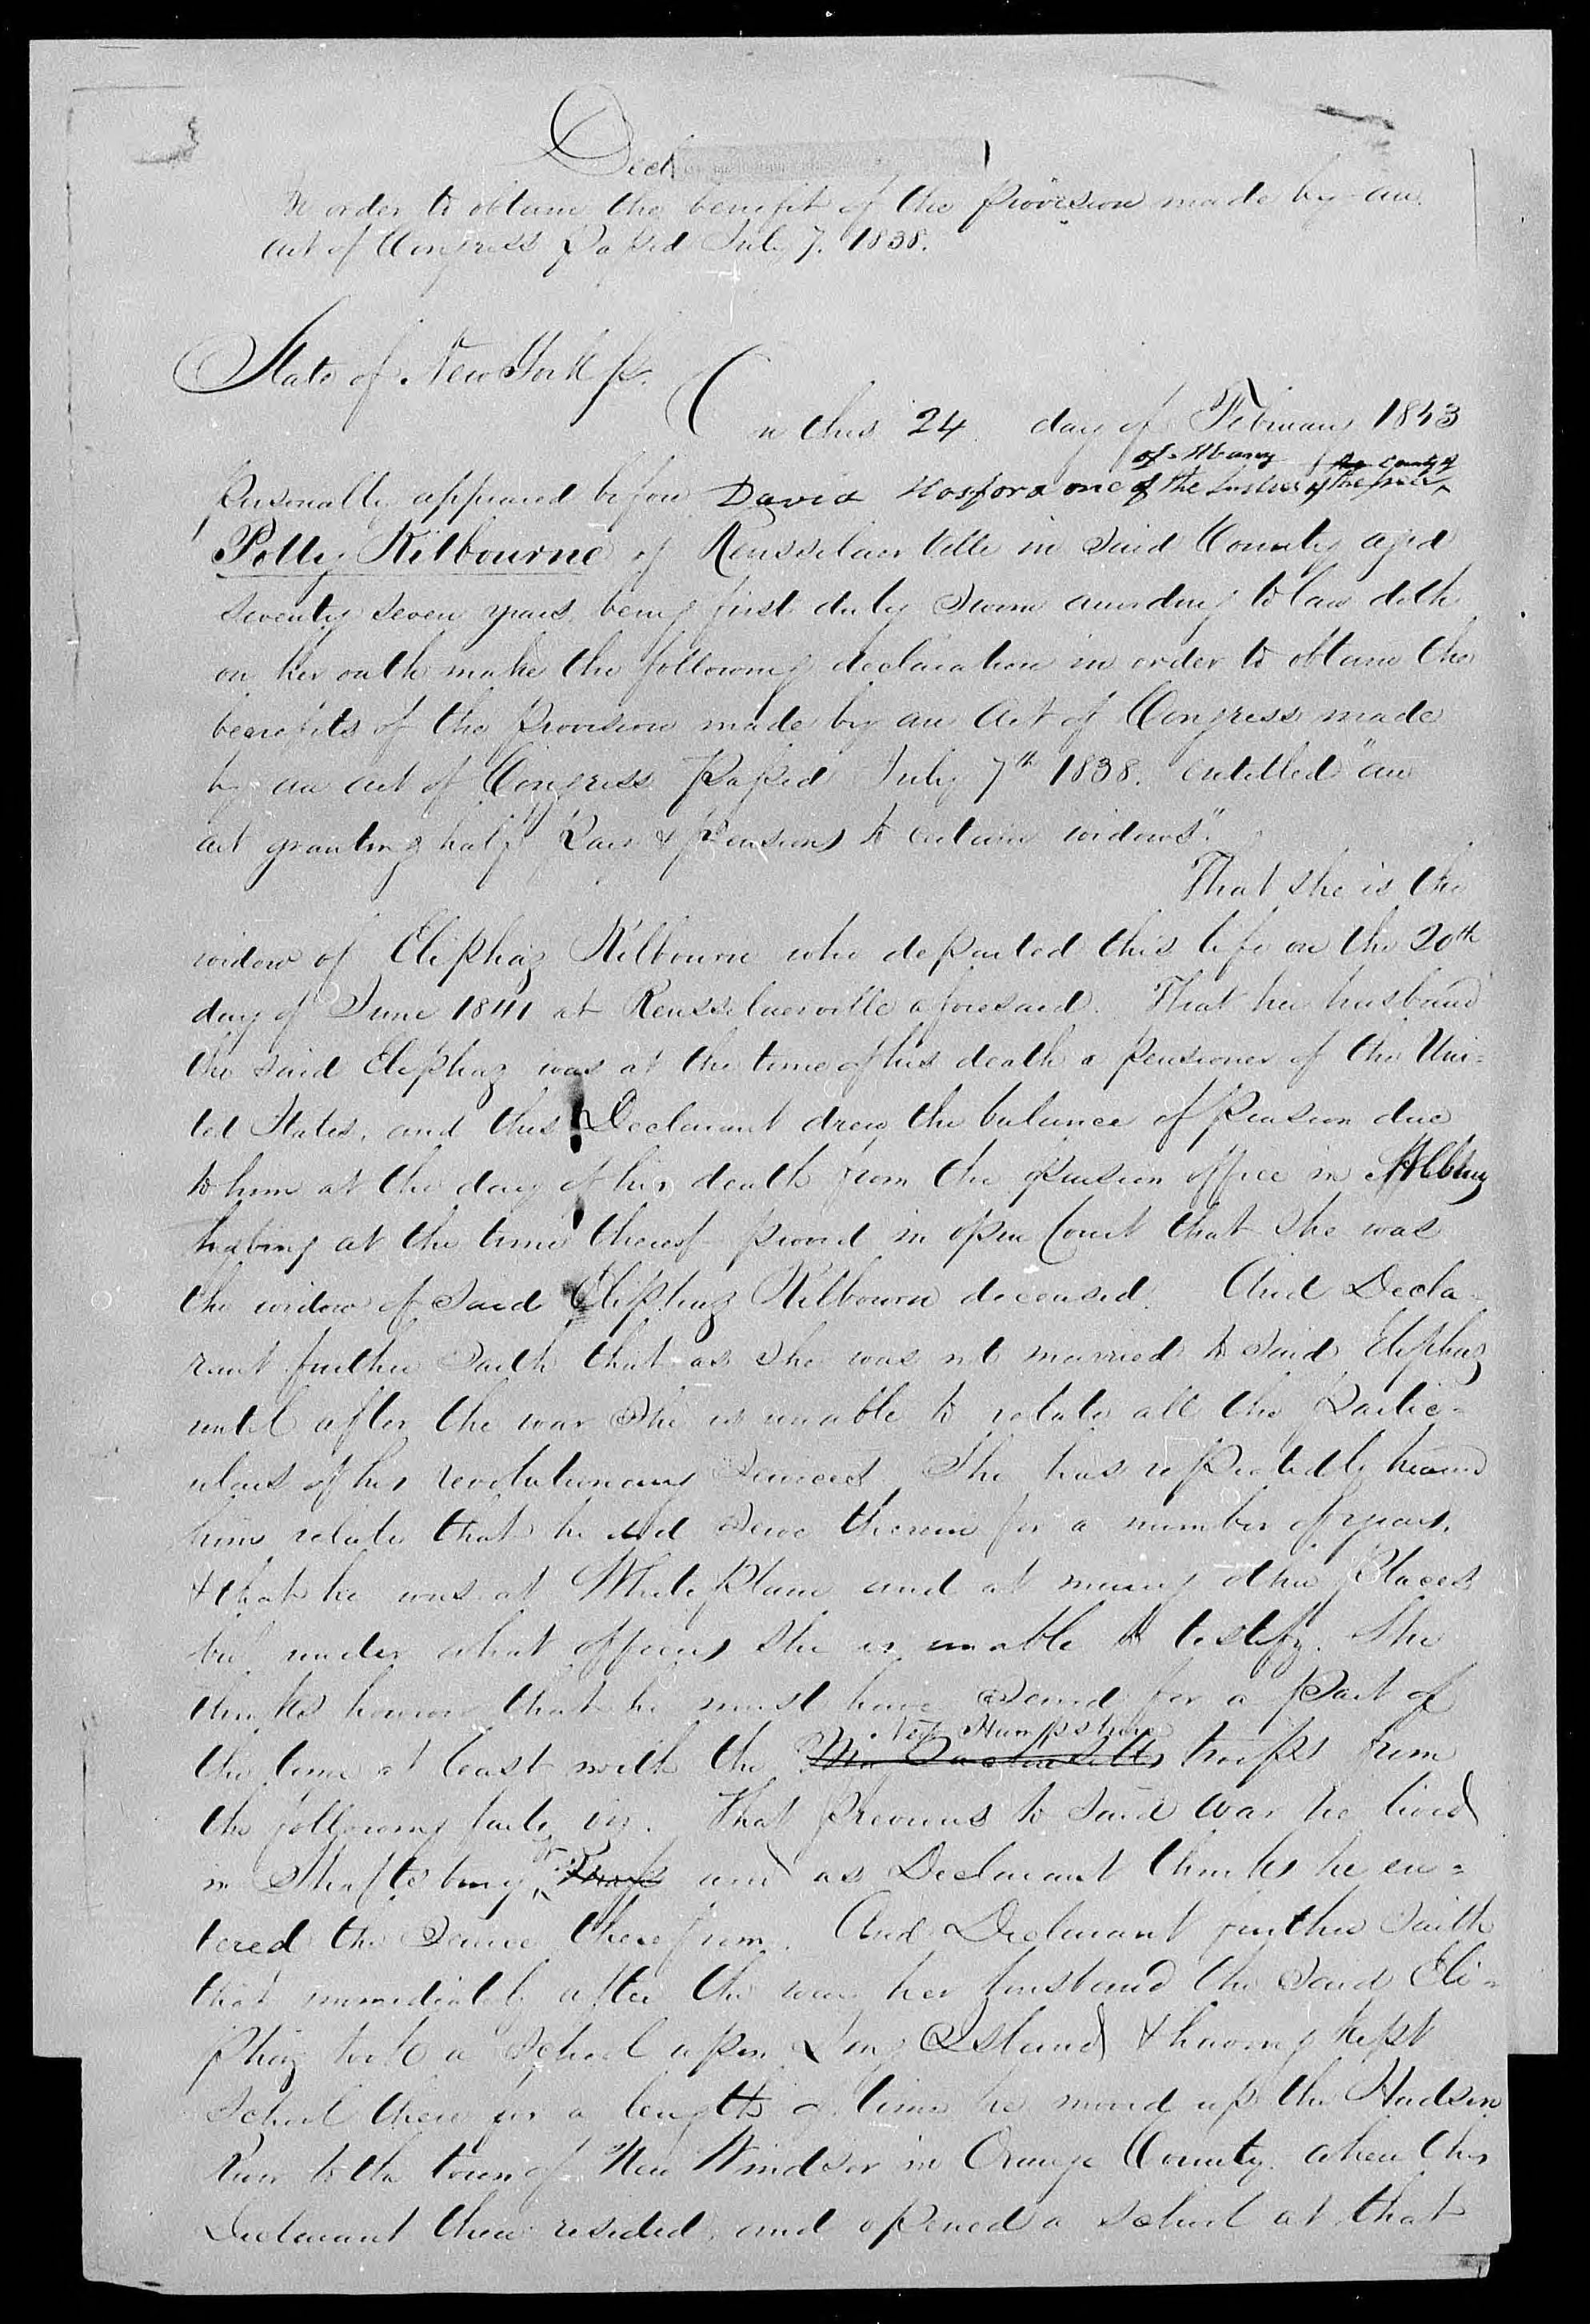 Decl
In order to obtain the benefit of the Provision made by an
act of Congress Passed July 7. 1838.
State of New York ss.
On this 24 day of February 1843
of Albany the County of
Personally appeared before David Hosford one of the Justices of the peace
Polly Kilbourne of Rensselaer Ville in said County aged
seventy seven years being first duly sworn according to law doth
on her oath make the following declaration in order to obtain the
benefits of the Provision made by an Act of Congress made
by an act of Congress Passed July 7th 1838. entitled "an
act granting half Pay & Pensions to certain widows".
That she is the
widow of Eliphaz Kilbourn who departed this life on the 20th
day of June 1841 at Rensselaerville aforesaid. That her husband
the said Eliphaz was at the time of his death a Pensioner of the Uni=
ted States, and this Declarant drew the balance of Pension due
to him at the day of his death from the Pension office in Albany
having at the time thereof proved in open Court that she was
the widow of said Eliphaz Kilbourn deceased. And Decla-
rant further saith that as she was not married to said Eliphaz
until after the war she is unable to relate all the Partic=
ulars of his revolutionary services. She has repeatedly heard
him relate that he did serve therein for a number of years,
& that he was at White Plains and at many other Places
but under what officers she is unable to testify. She
thinks however that he must have served for a Part of
New Hampshire
the time at least with the Massachusetts troops from
the following facts viz. That previous to said war he lived
in Shaftsbury and as Declarant thinks he en=
tered the service therefrom. And Declarant further saith
that immediately after the war her husband the said Eli=
phaz took a school upon Long Island & having kept
school there for a length of time he moved up the Hudson
River to the town of New Windsor in Orange County where this
Declarant then resided, and opened a school at that